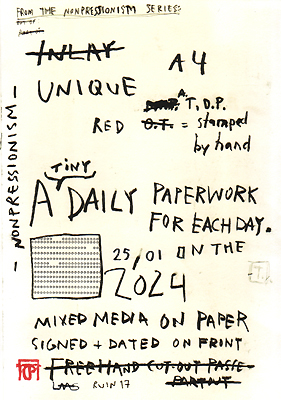 FROM THE NONPRESSIONISM SERIES:
INLAY
A4
UNIQUE
A. T.D.P.
RED O.T. = stamped
by hand
TINY
A DAILY PAPERWORK
FOR EACH DAY.
NONPRESSIONISM
25/01 ON THE
2024
MIXED MEDIA ON PAPER
SIGNED + DATED ON FRONT
FREEHAND CUT-OUT PASSE-
PARTOUT
LAAS RUIN 17